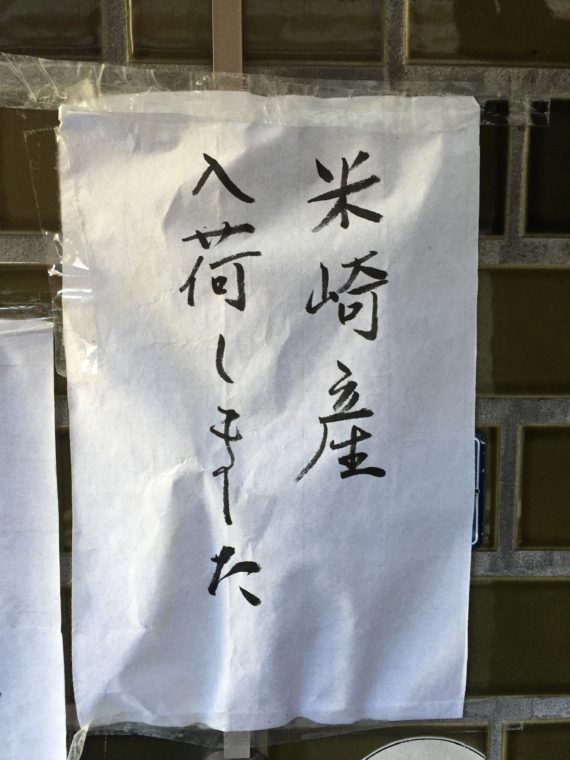 米崎産
入荷しました